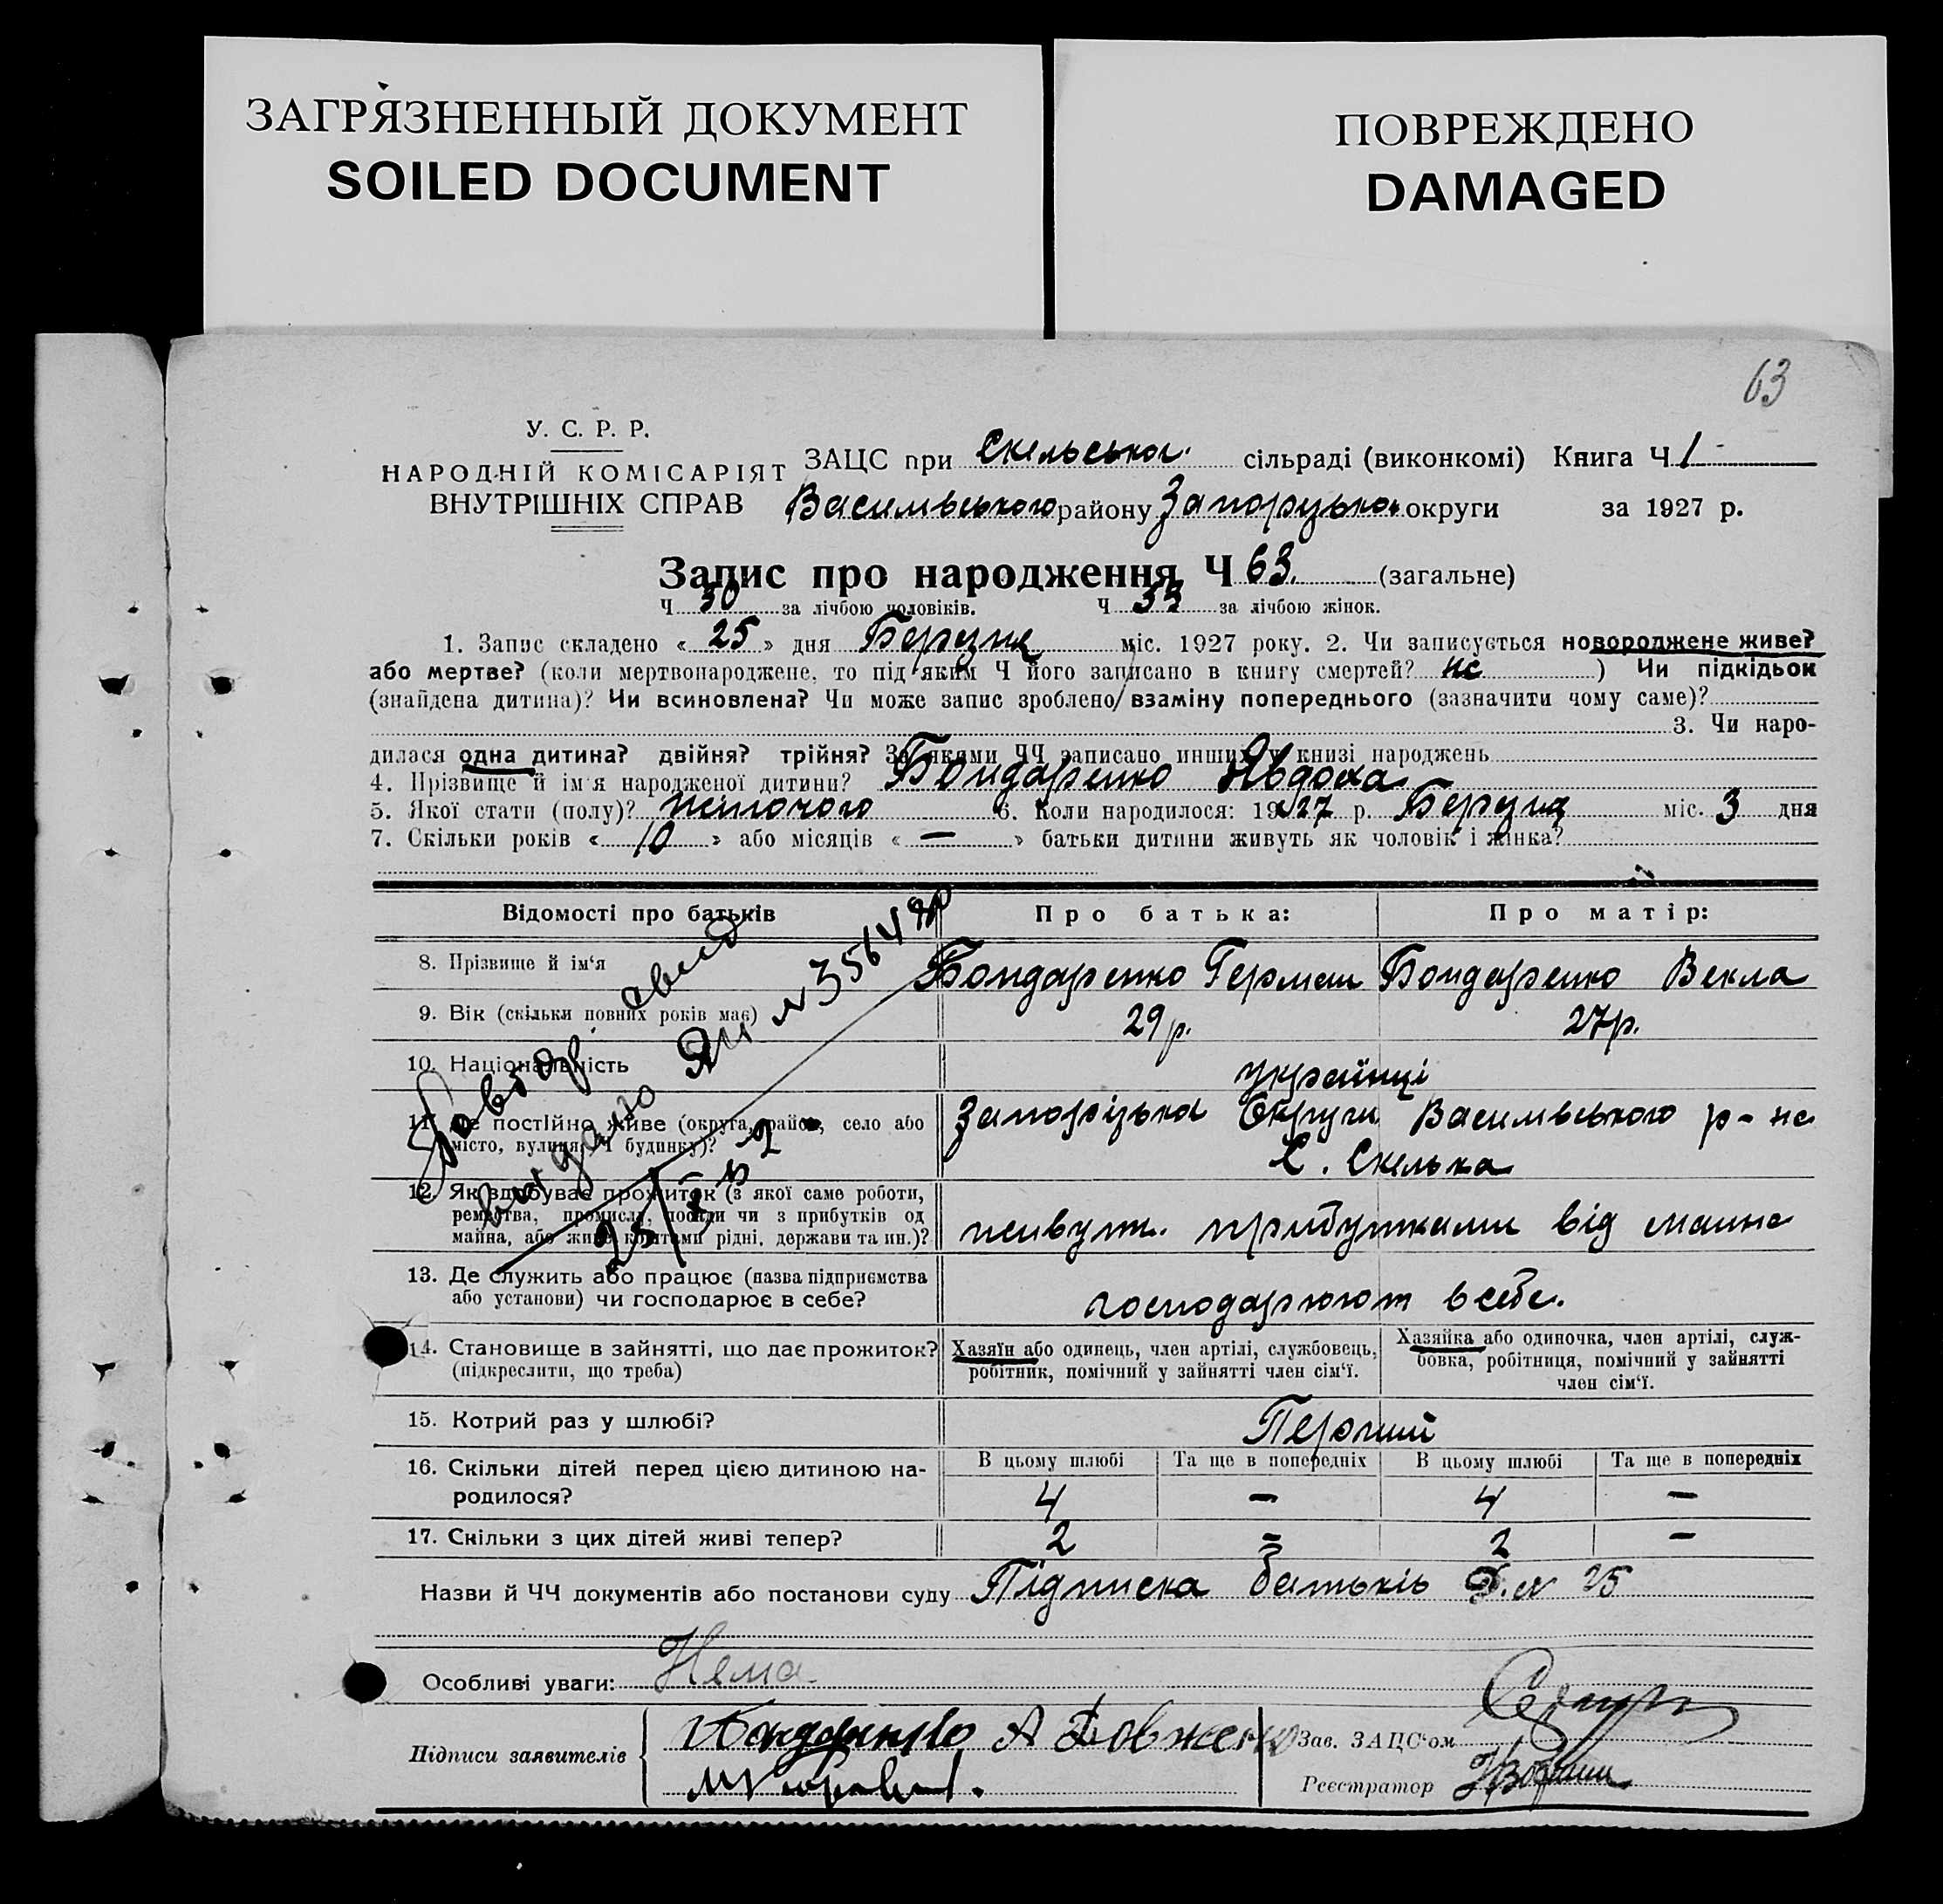 ЗАГРЯЗНЕННЫЙ ДОКУМЕНТ
SOILED DOCUMENT
ПОВРЕЖДЕНО
DAMAGED
63
У. С. Р. Р.
НАРОДНІЙ КОМІСАРІЯТ
ВНУТРІШНІХ СПРАВ
ЗАЦС при Скельської сільраді (виконкомі) Книга Ч 1
Василівського району Запорузької округи за 1927 р.
Запис про народження Ч 63. (загальне)
Ч 30 за лічбою чоловіків. Ч 33 за лічбою жінок.
1. Запис складено « 25 » дня Березня міс. 1927 року. 2. Чи записується новороджене живе?
або мертве? (коли мертвонароджене, то під яким Ч його записано в книгу смертей? не ) Чи підкідьок
(знайдена дитина)? Чи всиновлена? Чи може запис зроблено взаміну попереднього (зазначити чому саме)?
3. Чи наро-
дилася одна дитина? двійня? трійня? За якими ЧЧ записано инших у книзі народжень
4. Прізвище й ім'я народженої дитини? Бондаренко Явдоха
5. Якої стати (полу)? жіночого 6. Коли народилося: 1927 р. Березня міс. 3 дня
7. Скільки років « 10 » або місяців « — » батьки дитини живуть як чоловік і жінка?
Відомості про батьків Про батька: Про матір:
8. Прізвище й ім'я Бондаренко Герман Бондаренко Векла
9. Вік (скільки повних років має) 29 р. 27 р.
10. Національність українці
11. Де постійно живе (округа, район, село або
місто, вулиця, Ч будинку)? Запорізька Округи Василівського р-на
С. Скелька
12. Як здобуває прожиток (з якої саме роботи,
ремества, промисла, посади чи з прибутків од
майна, або живе коштами рідні, держави та ин.)? прибутками від
13. Де служить або працює (назва підприємства
або установи) чи господарює в себе? господарюют в себе.
14. Становище в зайнятті, що дає прожиток?
(підкреслити, що треба)
Хазяїн або одинець, член артілі, службовець,
робітник, помічний у зайнятті член сім'ї.
Хазяйка або одиночка, член артілі, служ-
бовка, робітниця, помічний у зайнятті
член сім'ї.
15. Котрий раз у шлюбі? Перший
16. Скільки дітей перед цією дитиною на-
родилося?
В цьому шлюбі Та ще в попередніх В цьому шлюбі Та ще в попередніх
4 — 4 —
17. Скільки з цих дітей живі тепер? 2 — 2 —
видано № 356480
Назви й ЧЧ документів або постанови суду Підписка батьків 25
Особливі уваги: Нема
Підписи заявителів А Довженко
Зав. ЗАЦС'ом
Реєстратор